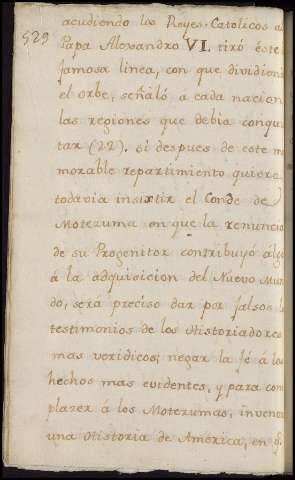 529
acudiendo los Reyes Catolicos al
Papa Alexandro VI. tiró este
famosa linea, con que dividiend
el orbe, señaló a cada nacion
las regiones que debia conqui
tar (22). Si despues de este me
morable repartimiento quiere
todavia insistir el Conde de
Motezuma en que la renuncia
de su Progenitor contribuyó algo
á la adquisicion del Nuevo Mun
do, será preciso dar por falsos l
testimonios de los Historiadores
mas veridicos; negar la fé á los
hechos mas evidentes, y para com
plazer á los Motezumas, inventa
una Historia de America, en q.